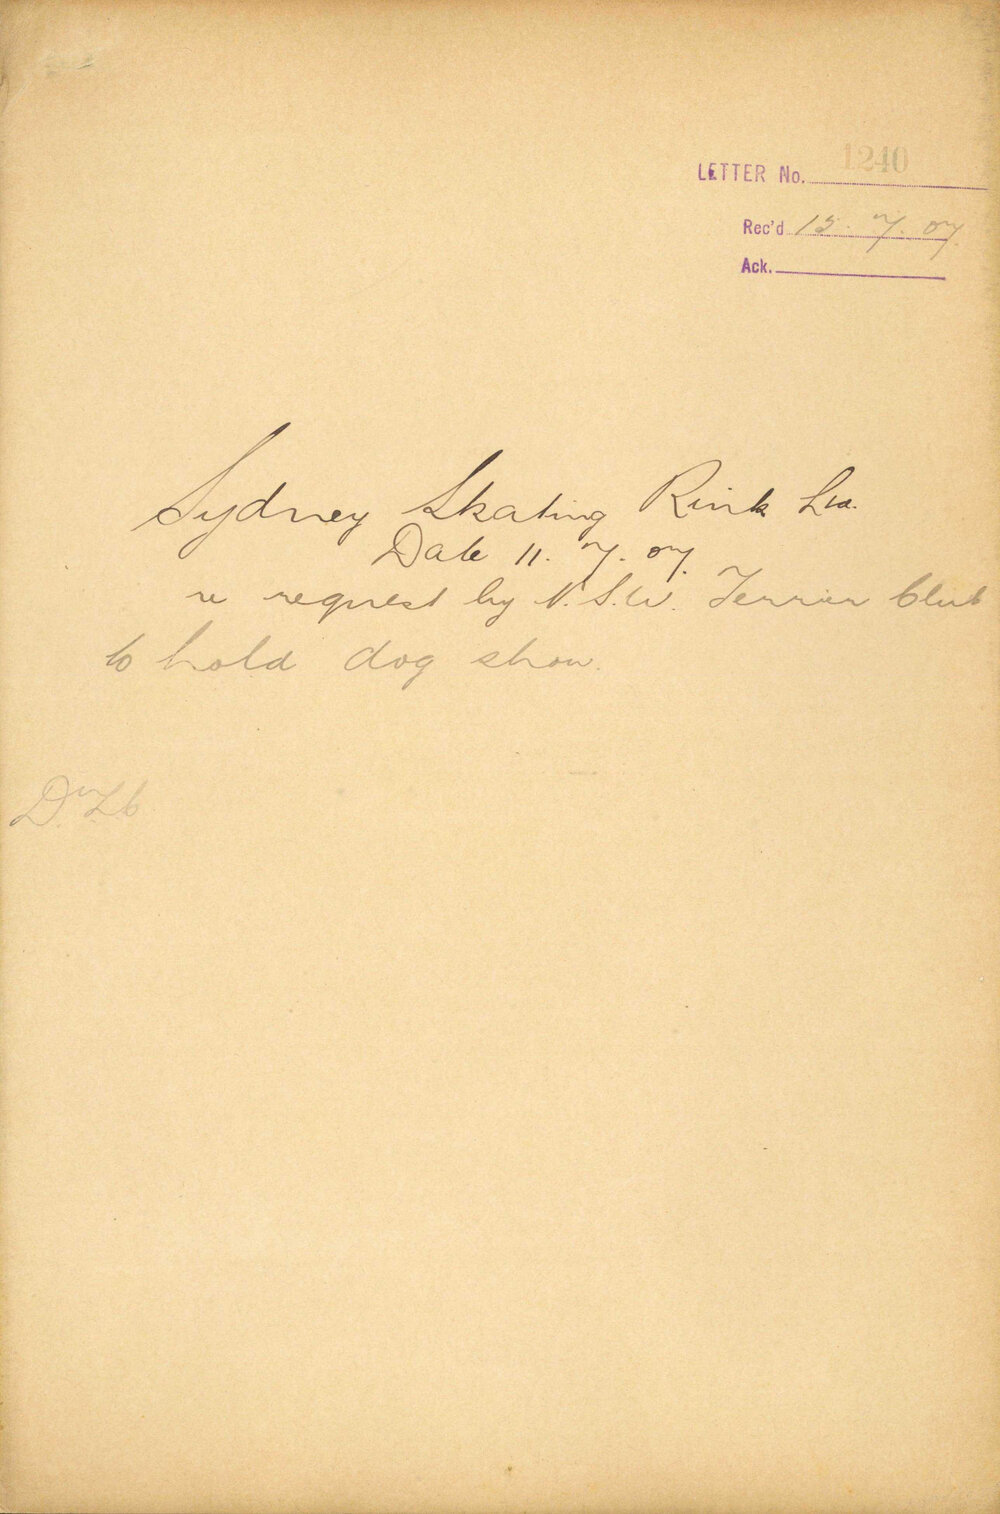 LETTER No. 1240
Rec'd 15.7.07.
Ack.
Sydney Skating Rink Ltd.
Date 11.7.07.
re request by N.S.W. Terrier Club
to hold dog show.